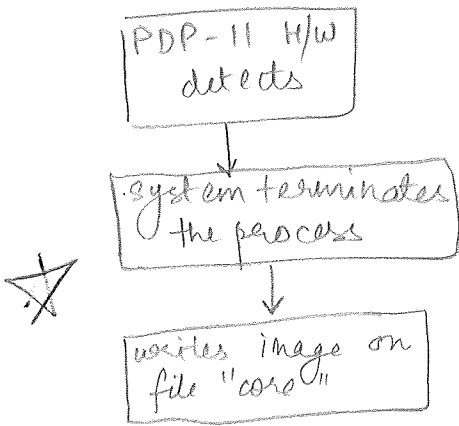 PDP-11 H/W
detects
system terminates
the perocess
writes image on
file "core"